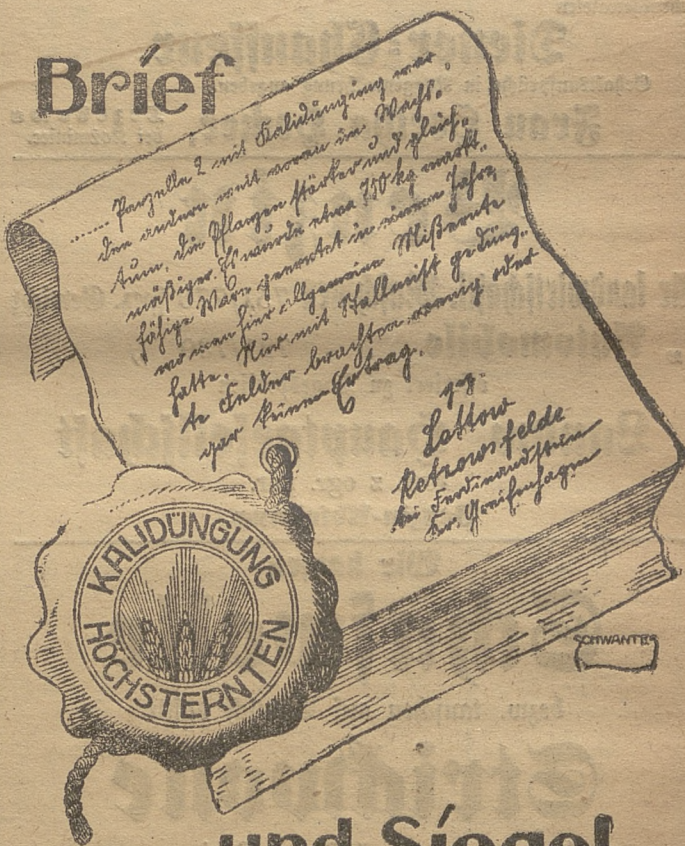 Brief
....... Parzelle 2 mit Kalidüngung war
den andern weit voran im Wachs-
tum, die Pflanzen stärker und gleich-
mäßiger. Es wurde etwa 750 kg markt-
fähige Ware geerntet in einem Jahre,
wo man hier allgemeine Mißernte
hatte. Nur mit Stallmist gedüng-
te Felder brachten wenig oder
gar keinen Ertrag.
gez.
Lattow
Retzowsfelde
bei Ferdinandstein
Kr. Greifenhagen
KALIDÜNGUNG
HÖCHSTERNTEN
SCHWANTES
und Siegel